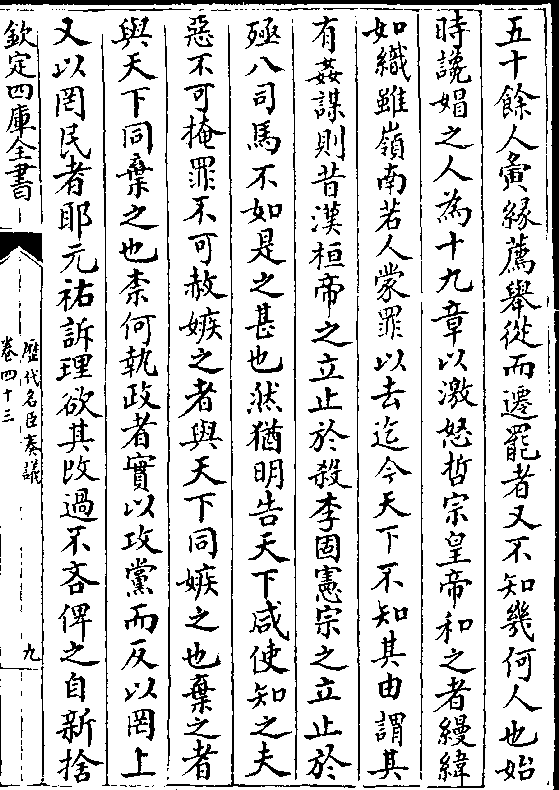 五十餘人夤緣薦舉從而遷罷者又不知幾何人也始
時讒娼之人為十九章以激怒哲宗皇帝和之者縵緯
如織雖嶺南若人蒙罪以去迄今天下不知其由謂其
有姦謀則昔漢桓帝之立止於殺李固憲宗之立止於
殛八司馬不如是之甚也然猶明告天下咸使知之夫
惡不可掩罪不可赦嫉之者與天下同嫉之也棄之者
與天下同棄之也柰何執政者實以攻黨而反以罔上
又以罔民者耶元祐訴理欲其改過不吝俾之自新捨
欽定四庫全書
歷代名臣奏議
卷四十三
九